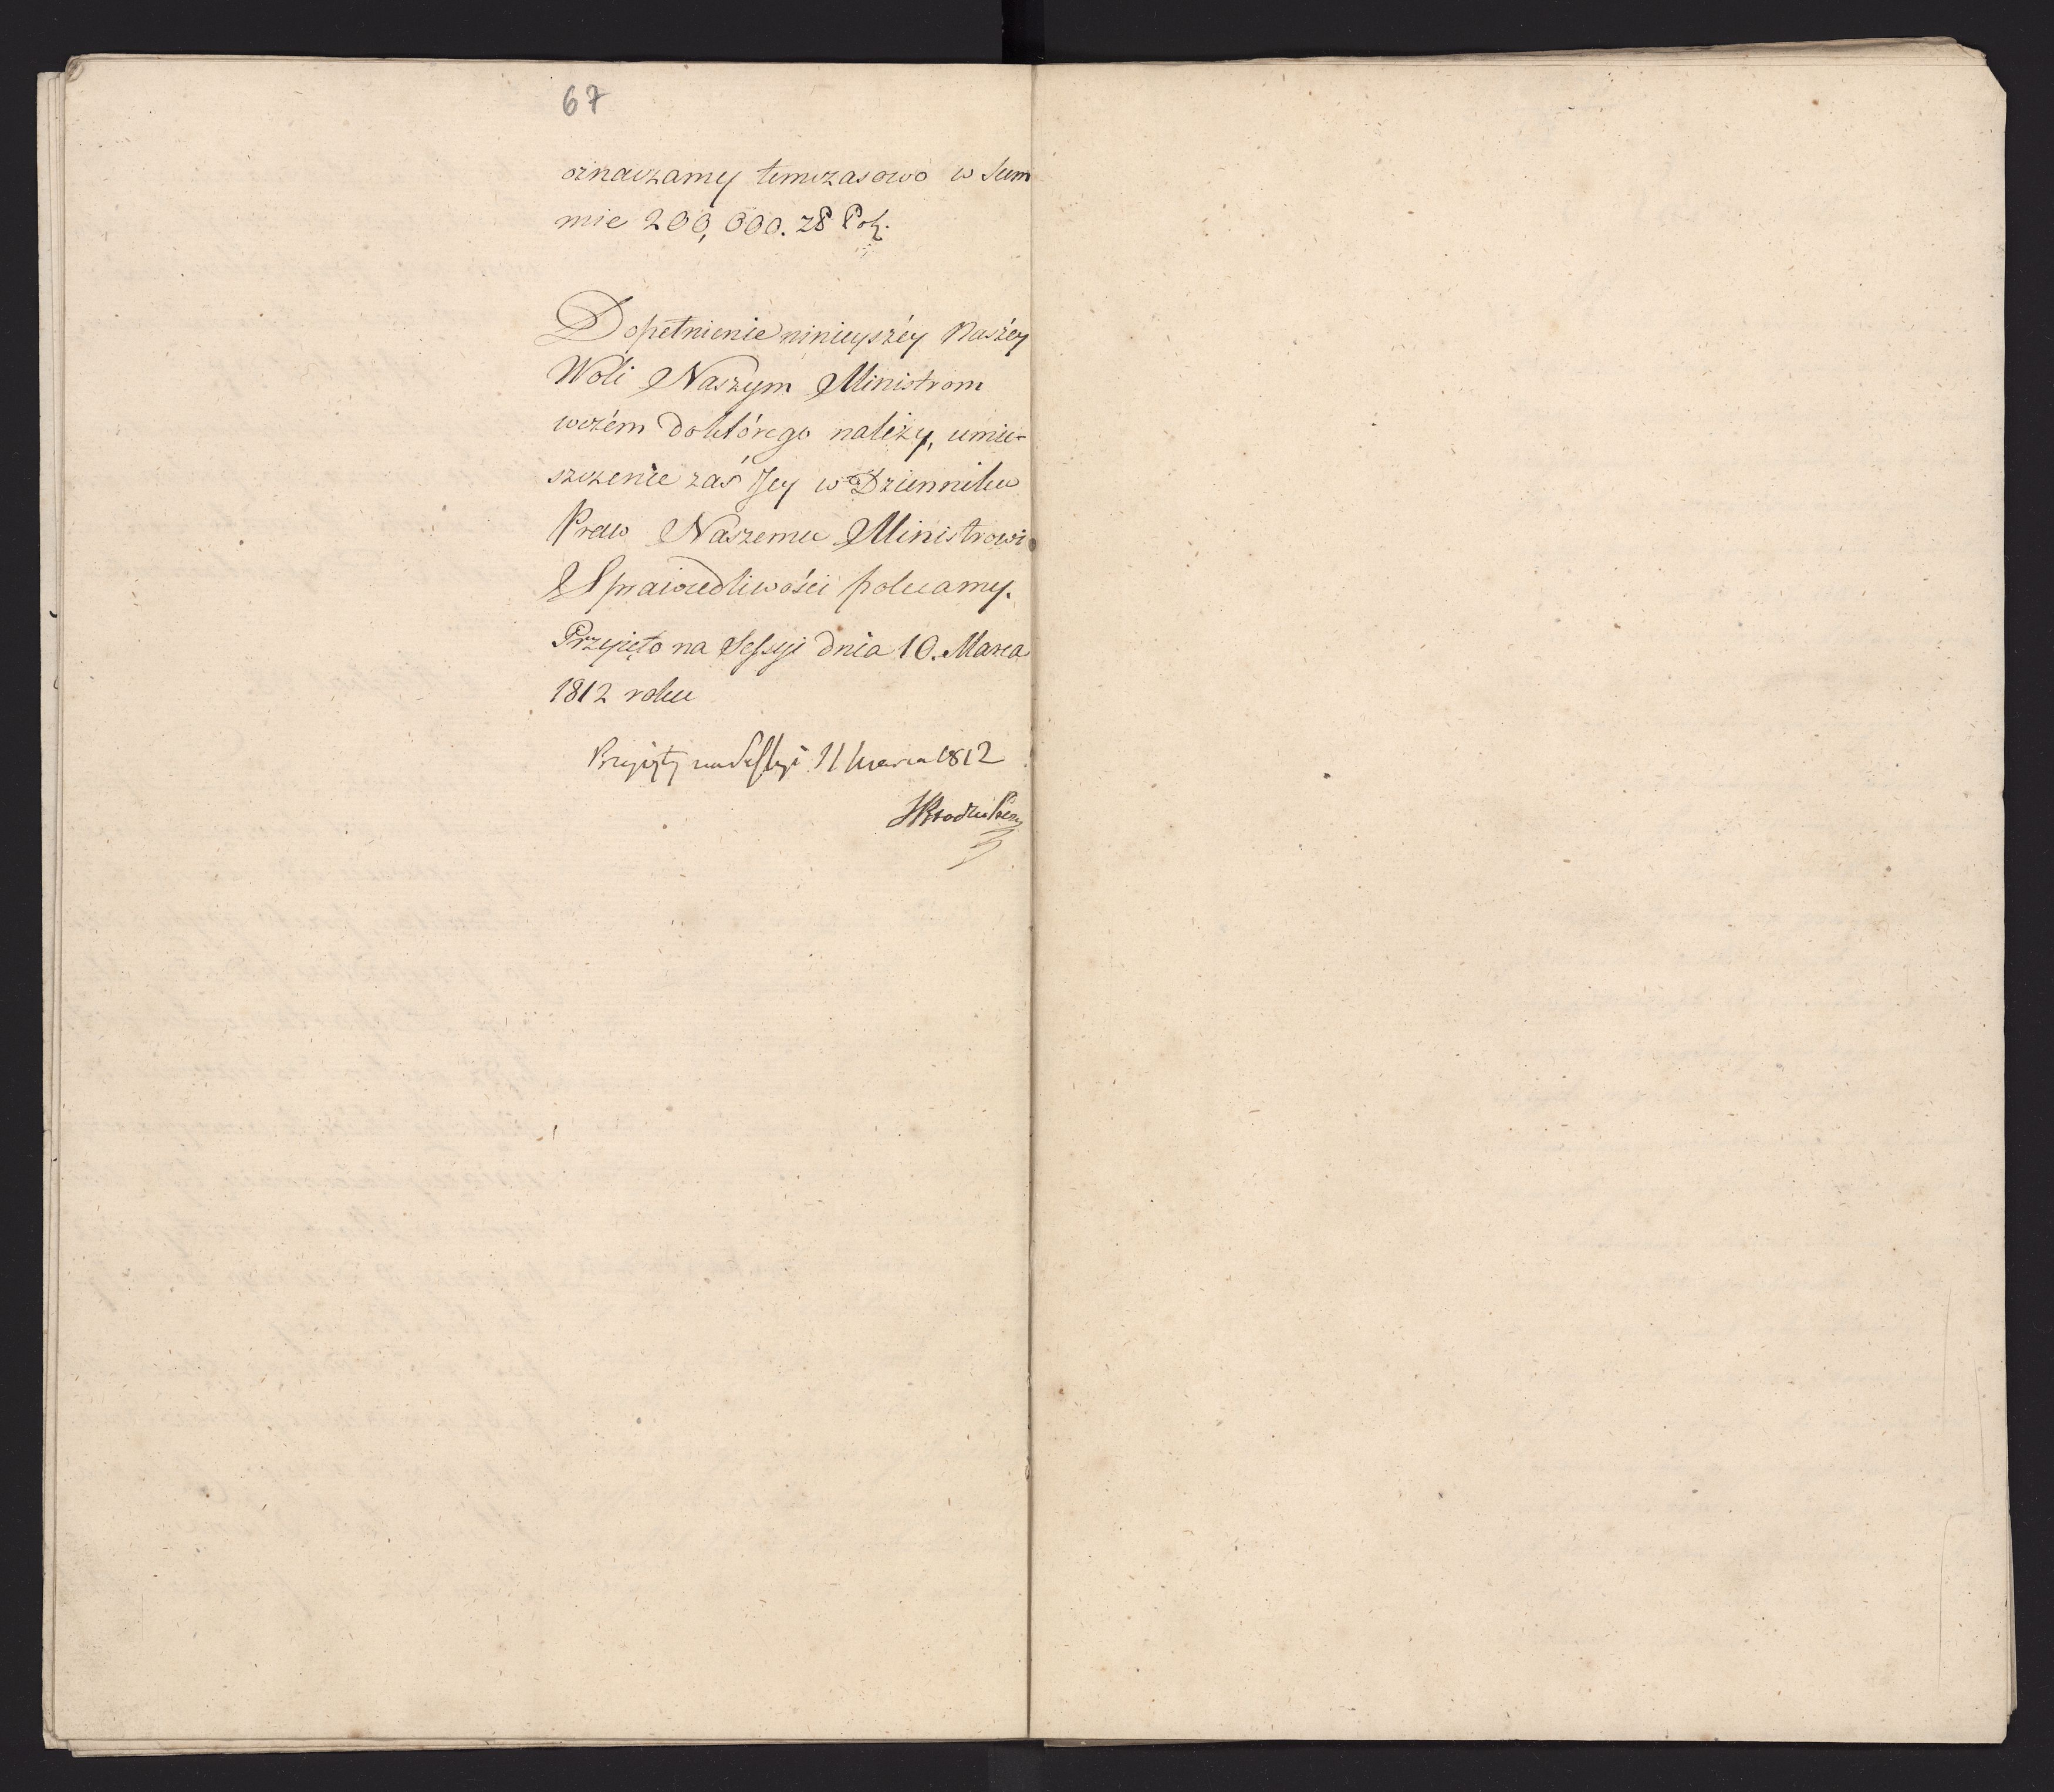 67
oznaczamy temczasowo w Sum
mie 200,000. zł Pol.
Dopełnienie ninieyszéy Naszéy
Woli Naszym Ministrom
wczém doktórego należy, umie-
szczenie zaś Jey w Dzienniku
Praw Naszemu Ministrowi
Sprawiedliwości polecamy.
Przyięto na Sessyi dnia 10. Marca
1812 roku
Przyięty na Sessyi 11 Marca 1812